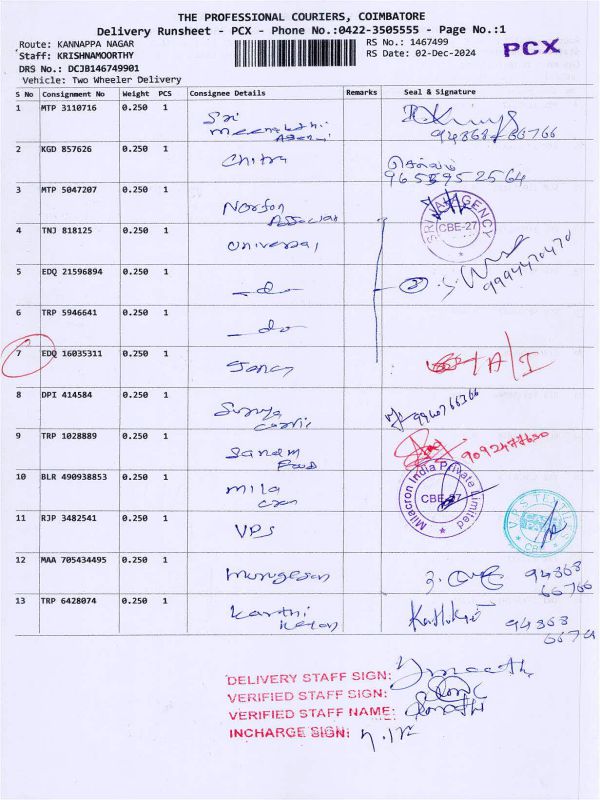 THE PROFESSIONAL COURIERS, COIMBATORE
Delivery Runsheet - PCX - Phone No.:0422-3505555 - Page No.:1
Route: KANNAPPA NAGAR
RS No.: 1467499
PCX
Staff: KRISHNAMOORTHY
RS Date: 02-Dec-2024
DRS No.: DCJB146749901
Vehicle: Two Wheeler Delivery
S No Consignment No Weight PCS Consignee Details Remarks Seal & Signature
1 MTP 3110716 0.250 1 Sri
2 KGD 857626 0.250 1 Chitra
3 MTP 5047207 0.250 1
SRI VARI AGENCY CBE-27
4 TNJ 818125 0.250 1 Universal
9994470470
5 EDQ 21596894 0.250 1 do
6 TRP 5946641 0.250 1 do
7 EDQ 16035311 0.250 1
8 DPI 414584 0.250 1 Surya
9 TRP 1028889 0.250 1 Sanam
Food 9092477630
10 BLR 490938853 0.250 1 Mila
Milacron India Private Limited CBE-27
11 RJP 3482541 0.250 1 VPS
V.P.S TEXTILES CBE
12 MAA 705434495 0.250 1 Murugesan 94868
66766
13 TRP 6428074 0.250 1 Karthi
94868
DELIVERY STAFF SIGN:
VERIFIED STAFF SIGN:
VERIFIED STAFF NAME:
INCHARGE SIGN: